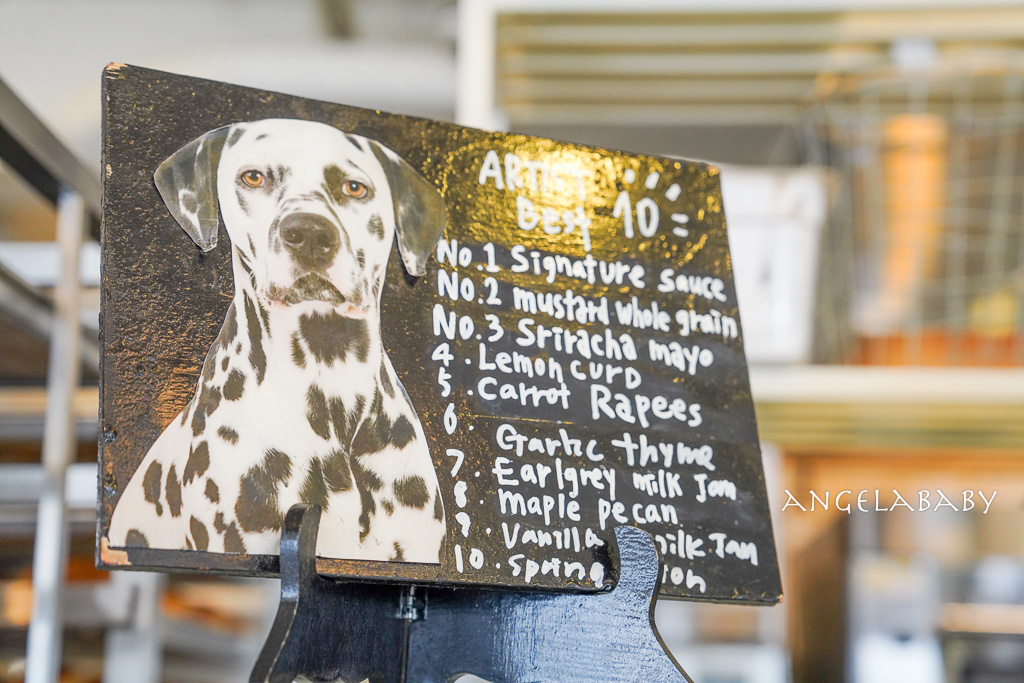 ARTIST
Best 10
No.1 Signature sauce
No.2 mustard whole grain
No.3 Sriracha mayo
4. Lemon curd
5. Carrot Rapees
6. Garlic thyme
7. Earlgrey milk Jam
8. maple pecan
9. Vanilla milk Jam
10. Spring
ANGELABABY